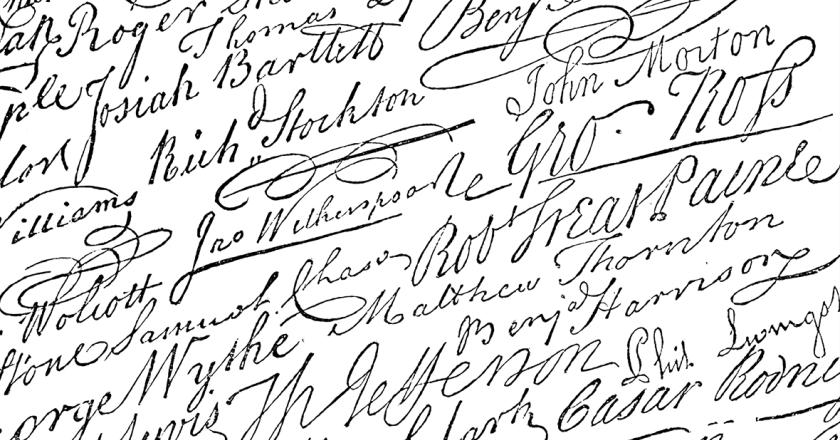 Roger
Thomas
Benj
Josiah Bartlett
John Morton
Rich^d Stockton
Geo. Ross
illiams
Jno Witherspoon
Rob^t Treat Paine
Wolcott
Samuel Chase
Matthew Thornton
tone
Benj^a Harrison
orge Wythe
Th Jefferson
Phil. Livings
ewis
Clark
Cæsar Rodne